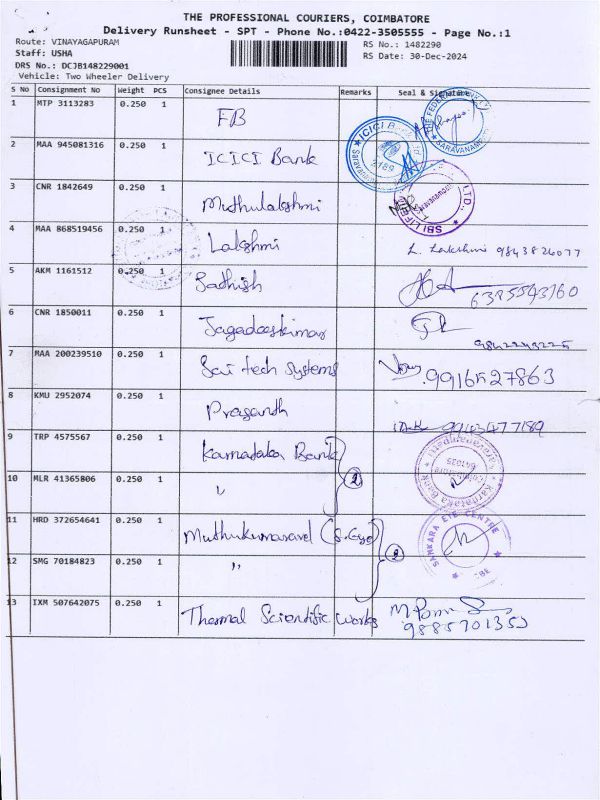 THE PROFESSIONAL COURIERS, COIMBATORE
Delivery Runsheet - SPT - Phone No.:0422-3505555 - Page No.:1
Route: VINAYAGAPURAM RS No.: 1482290
Staff: USHA RS Date: 30-Dec-2024
DRS No.: DCJB148229001
Vehicle: Two Wheeler Delivery
S No Consignment No Weight PCS Consignee Details Remarks Seal & Signature
1 MTP 3113283 0.250 1 FB
2 MAA 945081316 0.250 1 ICICI Bank
3 CNR 1842649 0.250 1 Muthulakshmi
4 MAA 868519456 0.250 1 Lakshmi L. Lakshmi 9843826077
5 AKM 1161512 0.250 1 Sathish 6385543760
6 CNR 1850011 0.250 1 Jagadeeskumar
7 MAA 200239510 0.250 1 Sai tech systems 9916527863
8 KMU 2952074 0.250 1 Prasanth
9 TRP 4575567 0.250 1 Karnataka Bank
10 MLR 41365806 0.250 1 " 2
11 HRD 372654641 0.250 1 Muthukumaravel (S.Eye)
12 SMG 70184823 0.250 1 " 2
13 IXM 507642075 0.250 1 Thermal Scientific Works 9885701352
ICICI Bank
SBI LIFE LTD.,
Karnataka Bank
Coimbatore
641035
SANKARA EYE CENTRE